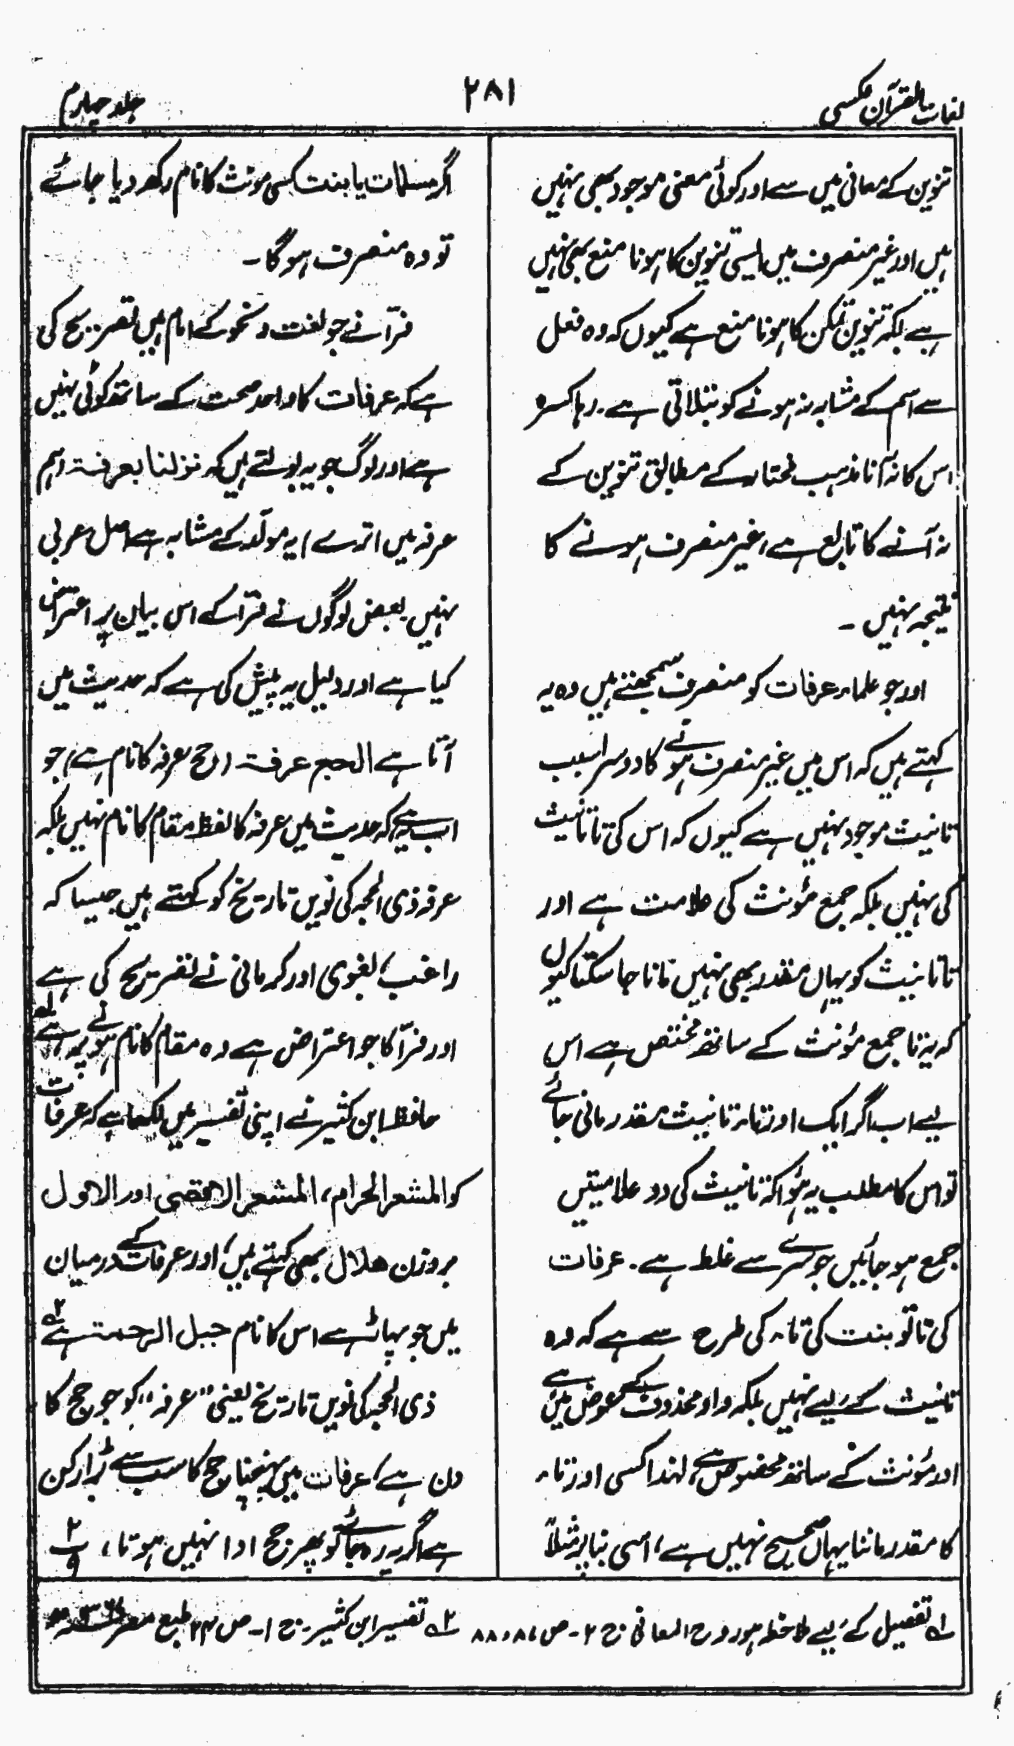 لغات القرآن عکسی
۲۸۱
جلد چہارم
تنوین کے معانی میں سے اور کوئی معنی موجود بھی نہیں
ہیں اور غیر منصرف میں ایسی تنوین کا ہونا منع بھی نہیں
ہے بلکہ تنوین تمکن کا ہونا منع ہے کیوں کہ وہ فعل
سے اسم کے مشابہ نہ ہونے کو بتلاتی ہے۔ رہا کسرہ
اس کا نہ آنا مذہب مختار کے مطابق تنوین کے
نہ آنے کا تابع ہے، غیر منصرف ہونے کا
نتیجہ نہیں۔
اور جو علماء عرفات کو منصرف سمجھتے ہیں وہ یہ
کہتے ہیں کہ اس میں غیر منصرف ہونے کا دوسرا سبب
تانیث موجود نہیں ہے کیوں کہ اس کی تا تانیث
کی نہیں بلکہ جمع مؤنث کی علامت ہے اور
تا تانیث کو یہاں مقدر بھی نہیں مانا جا سکتا کیوں
کہ یہ تا جمع مؤنث کے ساتھ مختص ہے اس
لیے اب اگر ایک اور تاء تانیث مقدر مانی جائے
تو اس کا مطلب یہ ہوا کہ تانیث کی دو علامتیں
جمع ہو جائیں جو سرے سے غلط ہے۔ عرفات
کی تا تو بنت کی تاء کی طرح سے ہے کہ وہ
تانیث کے لیے نہیں بلکہ واو محذوف کے عوض میں ہے
اور مؤنث کے ساتھ مخصوص ہے، لہٰذا کسی اور تاء
کا مقدر ماننا یہاں صحیح نہیں ہے، اسی بنا پر مثلاً
اگر مسلمات یا بنت کسی مونث کا نام رکھ دیا جائے
تو وہ منصرف ہوگا۔
فرآنے جو لغت و نحو کے امام ہیں تصریح کی
ہے کہ عرفات کا واحد صحت کے ساتھ کوئی نہیں
ہے اور لوگ جو یہ بولتے ہیں کہ نزلنا بعرفۃ (ہم
عرفہ میں اترے) یہ مولّد کے مشابہ ہے اصل عربی
نہیں بعض لوگوں نے فرّا کے اس بیان پر اعتراض
کیا ہے اور دلیل یہ پیش کی ہے کہ حدیث میں
آتا ہے الحج عرفۃ (حج عرفہ کا نام ہے) جو
اب یہ ہے کہ حدیث میں عرفہ کا لفظ مقام کا نام نہیں بلکہ
عرفہ ذی الحجہ کی نویں تاریخ کو کہتے ہیں جیسا کہ
راغب، بغوی اور کرمانی نے تصریح کی ہے
اور فرّا کا جو اعتراض ہے وہ مقام کا نام ہونے پر ہے ۱؎
حافظ ابن کثیر نے اپنی تفسیر میں لکھا ہے کہ عرفات
کو المشعر الحرام، المشعر الاقصی اور الالال
بروزن ھلال بھی کہتے ہیں، اور عرفات کے درمیان
میں جو پہاڑ ہے اس کا نام جبل الرحمۃ ہے ۲؎
ذی الحجہ کی نویں تاریخ یعنی "عرفہ" کو جو حج کا
دن ہے، عرفات میں پہنچنا حج کا سب سے بڑا رکن
ہے اگر یہ رہ جائے تو پھر حج ادا نہیں ہوتا، ۲/۹ پ
۱؎ تفصیل کے لیے ملاحظہ ہو روح المعانی ج ۲۔ ص ۸۷، ۸۸
۲؎ تفسیر ابن کثیر۔ ج ۱۔ ص ۲۴ طبع مصر